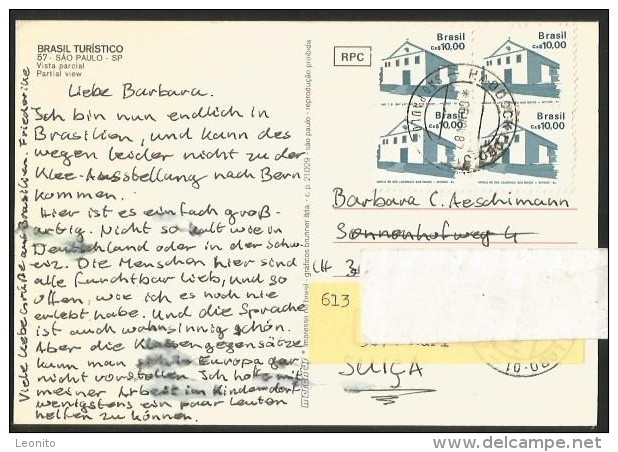 BRASIL TURÍSTICO
57 - SÃO PAULO - SP
Vista parcial
Partial view
Liebe Barbara.
Ich bin nun endlich in
Brasilien, und kann des
wegen leider nicht zu der
Klee-Ausstellung nach Bern
kommen.
Hier ist es einfach groß-
artig. Nicht so kalt wie in
Deutschland oder in der Schw
eiz. Die Menschen hier sind
alle furchtbar lieb, und so
offen, wie ich es noch nie
erlebt habe. Und die Sprache
ist auch wahnsinnig schön.
Aber die Klassengegensätze
kann man sich in Europa gar
nicht vorstellen. Ich hoffe mit
meiner Arbeit im Kinderdorf
wenigstens ein paar Leuten
helfen zu können.
Viele liebe Grüße aus Brasilien. Friederike
impresso no brasil - gráficos brunner ltda. - c. p. 21009 - são paulo - reprodução proibida
RPC
Brasil
Cz$ 10,00
Brasil
Cz$ 10,00
Brasil
10,00
Brasil
10,00
HADDOCK
SAO PAULO
Barbara C. Aeschimann
Sonnenhofweg 4
CH 3
613
SUIÇA
Leonito
www.delcampe.net